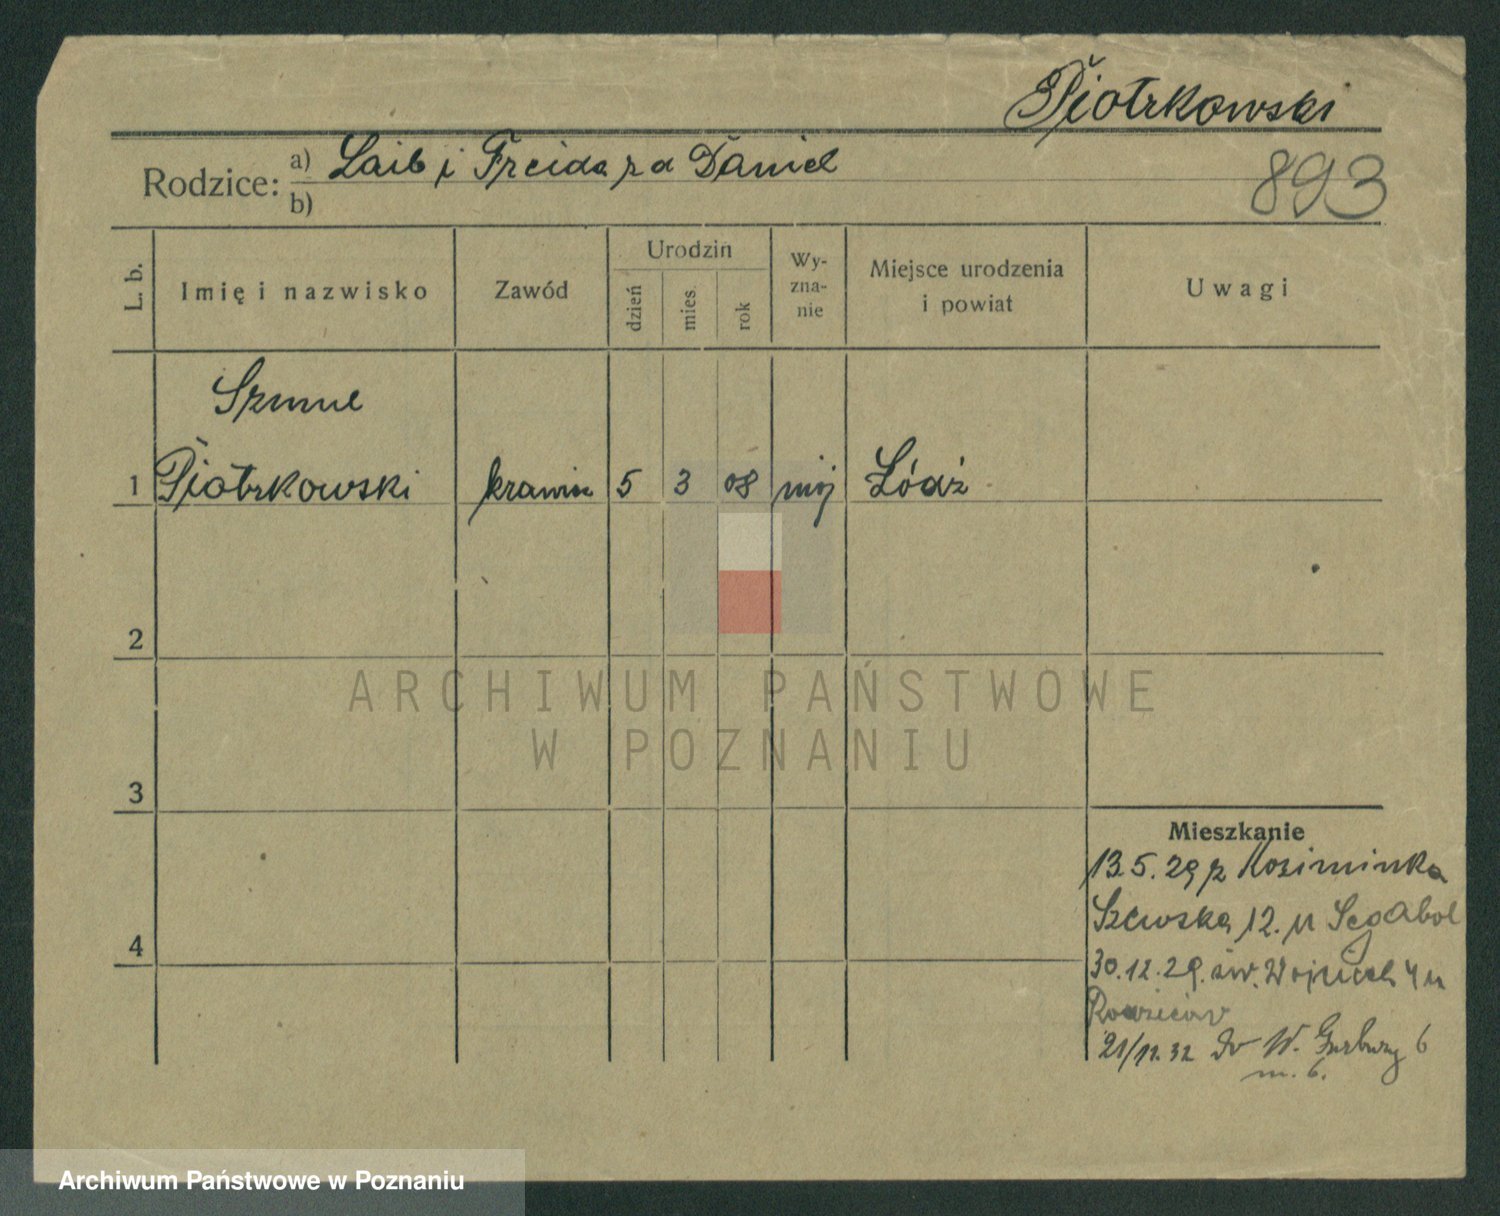 Piotrkowski
893
Rodzice: a) Laib i Freida z d Daniel
b)
L. b.
Imię i nazwisko
Zawód
Urodzin
dzień
mies.
rok
Wy-
zna-
nie
Miejsce urodzenia
i powiat
Uwagi
Szmul
1 Piotrkowski krawiec 5 3 08 mojż Łódź
2
ARCHIWUM PAŃSTWOWE
W POZNANIU
3
Mieszkanie
13.5.29 z Koźminka
Szewska 12. u
4
30.12.29. św. Wojciech 4 u
Rodziców
21/12.32 do W. 6
m. 6.
Archiwum Państwowe w Poznaniu